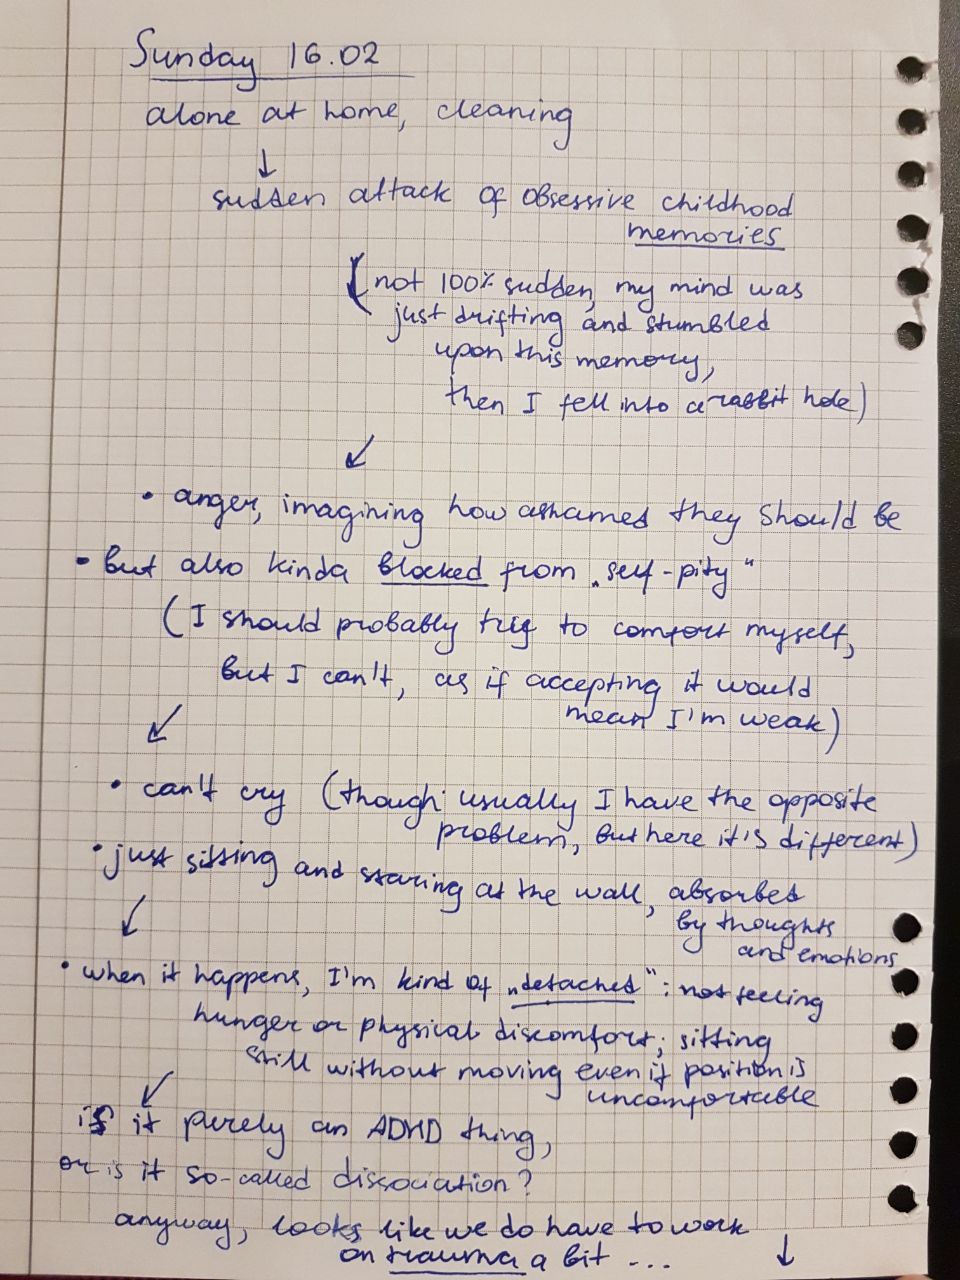 Sunday 16.02
alone at home, cleaning
↓
sudden attack of obsessive childhood
memories
(not 100% sudden, my mind was
just drifting and stumbled
upon this memory,
then I fell into a rabbit hole)
↙
• anger, imagining how ashamed they should be
• but also kinda blocked from „self-pity“
(I should probably try to comfort myself,
but I can't, as if accepting it would
mean I'm weak)
↙
• can't cry (though usually I have the opposite
problem, but here it's different)
• just sitting and staring at the wall, absorbed
by thoughts
and emotions
↙
• when it happens, I'm kind of „detached“: not feeling
hunger or physical discomfort; sitting
still without moving even if position is
uncomfortable
↙
is it purely an ADHD thing,
or is it so-called dissociation?
anyway, looks like we do have to work
on trauma a bit ... ↓